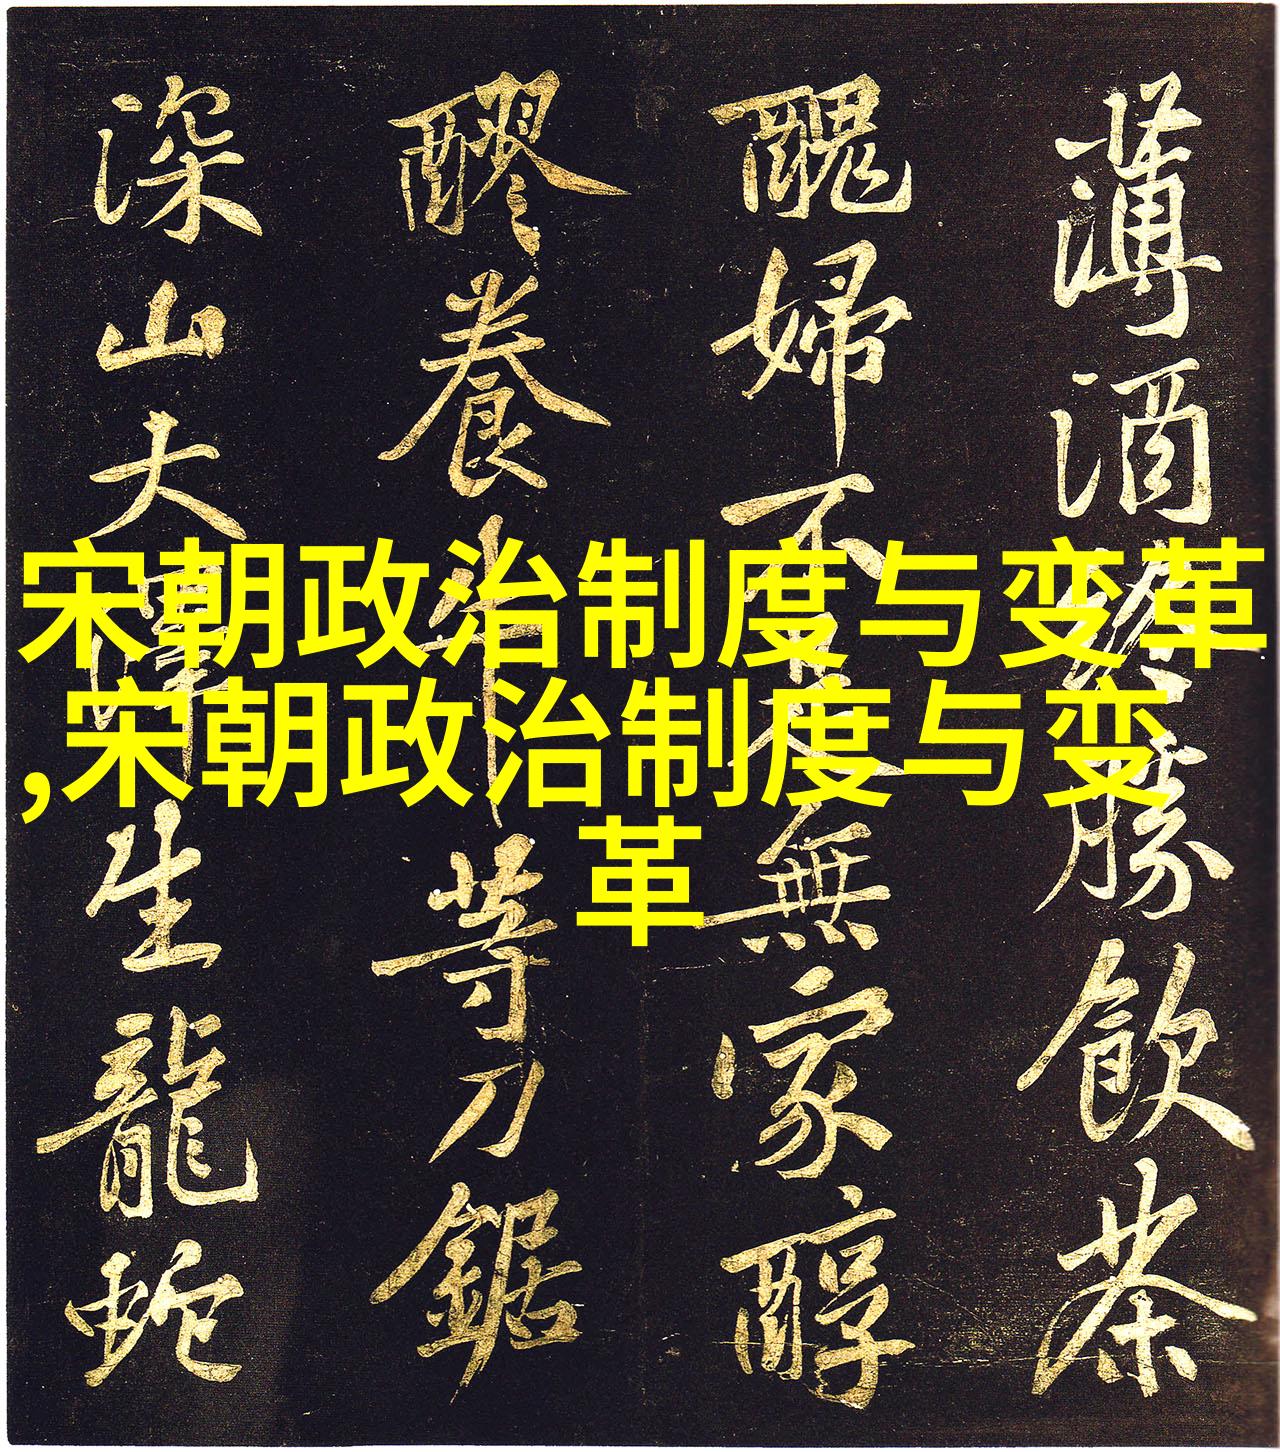 薄酒終勝飲茶
醜婦不是無家醇
醪養牛等刀鋸
深山大澤生龍蛇
宋朝政治制度与变革
,宋朝政治制度与变
革